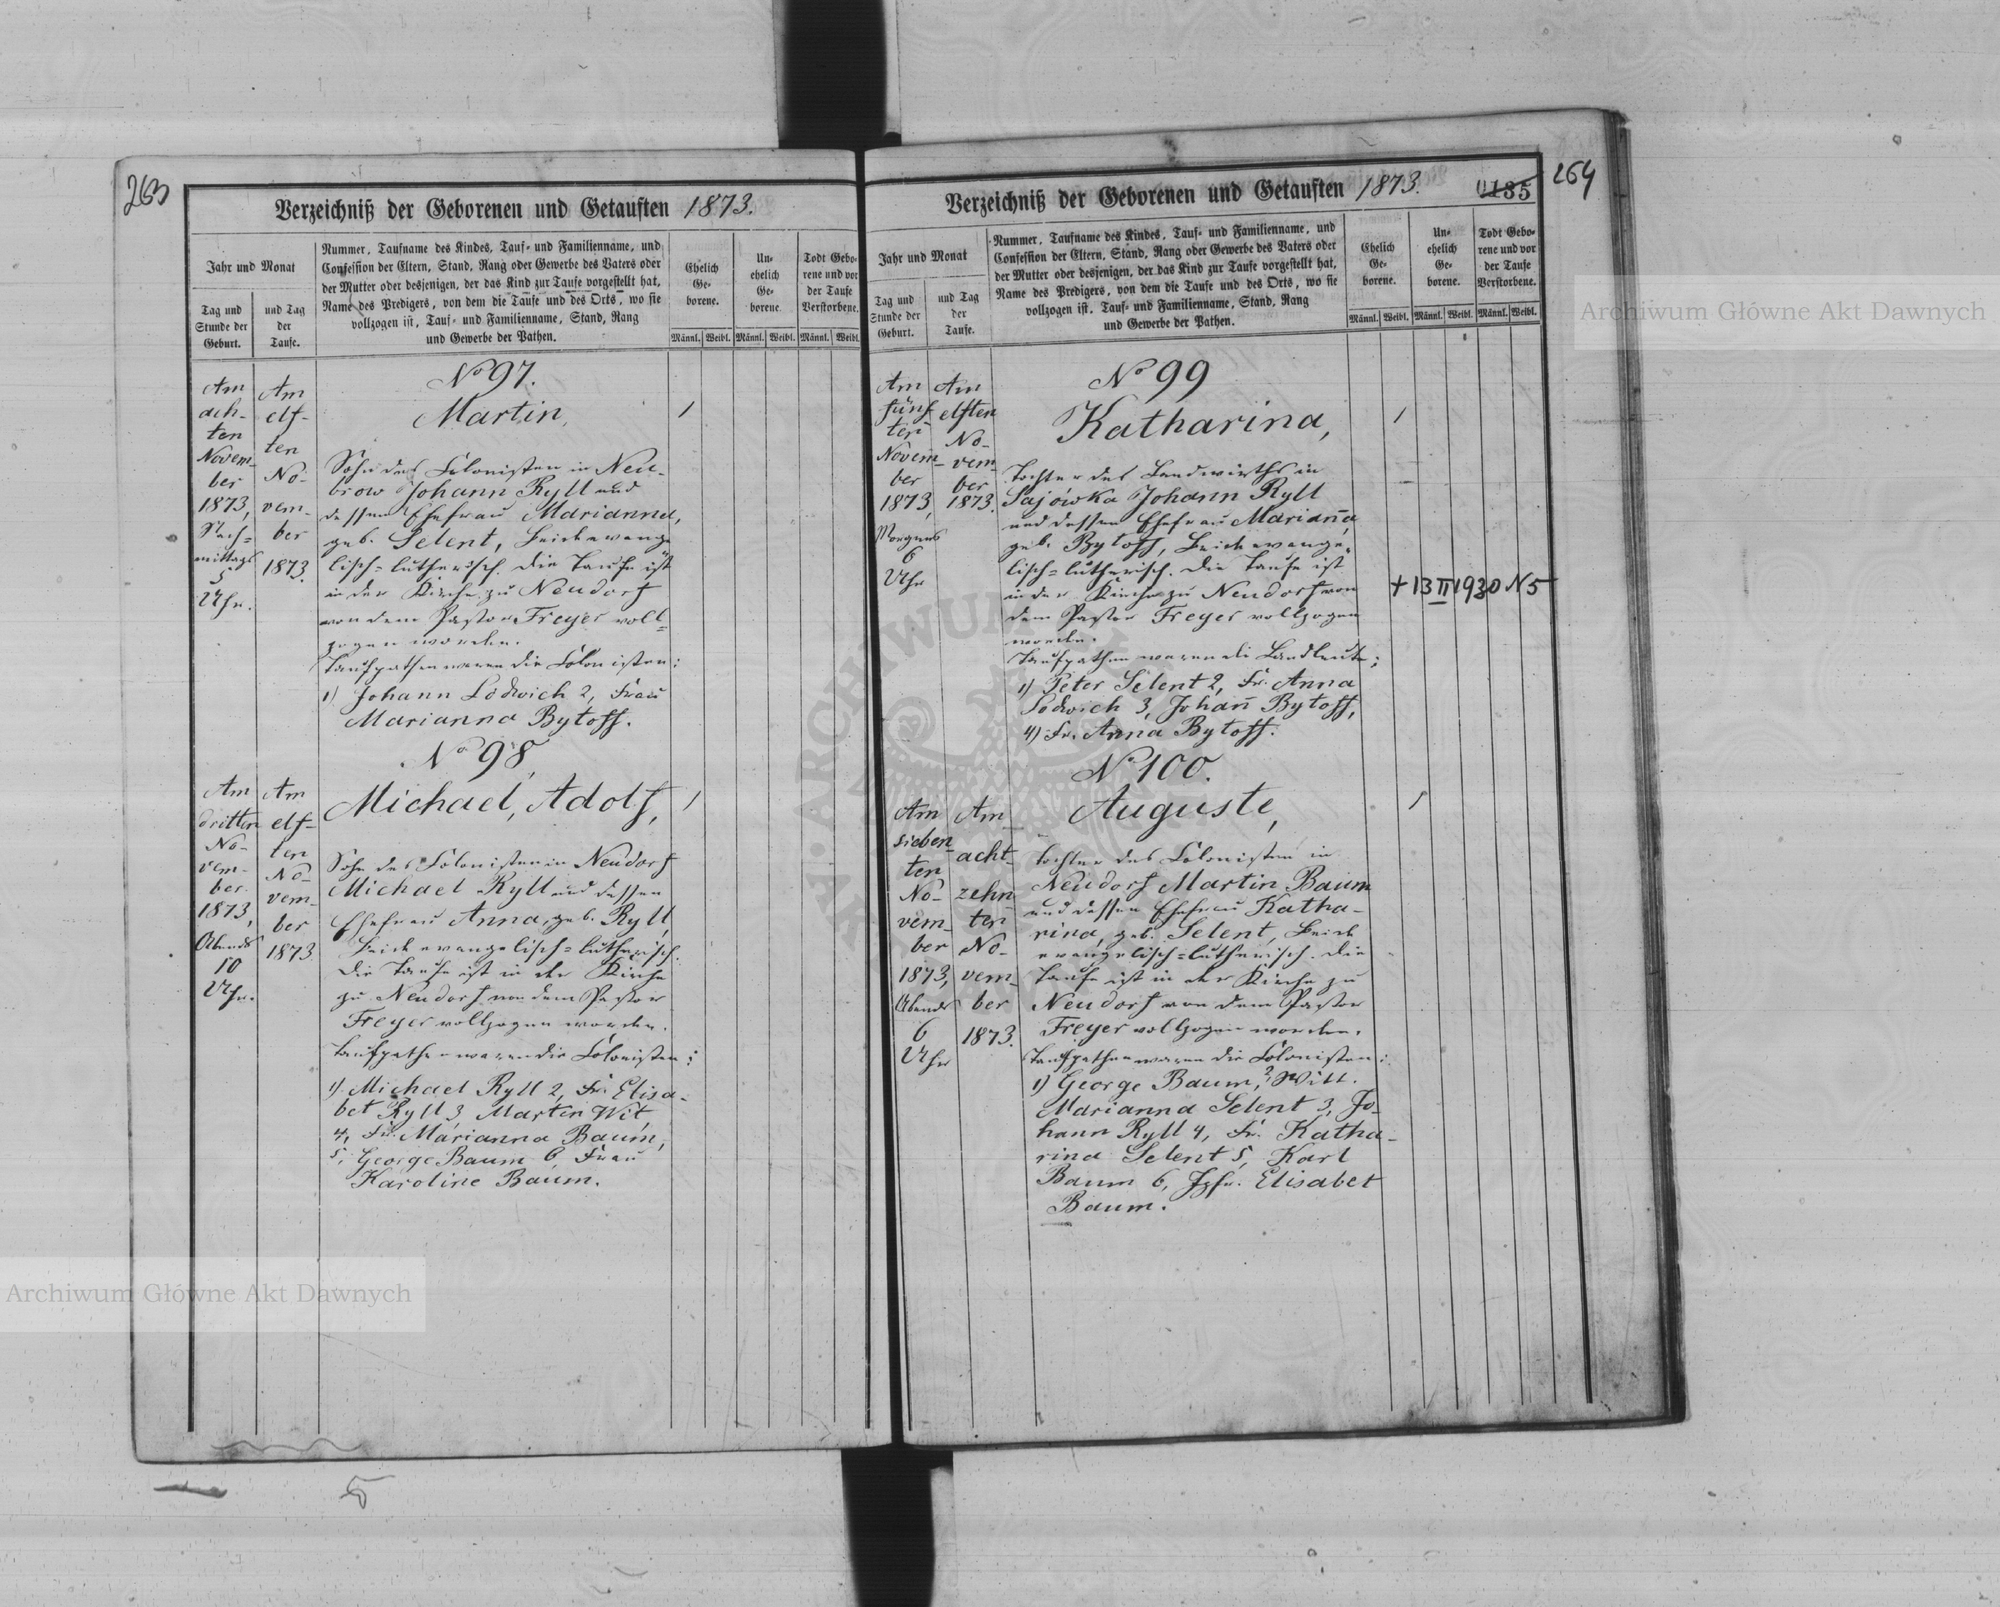 263
Verzeichniß der Geborenen und Getauften 1873.
Jahr und Monat
Tag und
Stunde der
Geburt.
und Tag
der
Taufe.
Nummer, Taufname des Kindes, Tauf- und Familienname, und
Confession der Eltern, Stand, Rang oder Gewerbe des Vaters oder
der Mutter oder desjenigen, der das Kind zur Taufe vorgestellt hat,
Name des Predigers, von dem die Taufe und des Orts, wo sie
vollzogen ist, Tauf- und Familienname, Stand, Rang
und Gewerbe der Pathen.
Ehelich
Ge-
borene.
Un-
ehelich
Ge-
borene.
Todt Gebo-
rene und vor
der Taufe
Verstorbene.
Männl. Weibl. Männl. Weibl. Männl. Weibl.
Am
ach-
ten
Novem-
ber
1873,
Nach-
mittags
5
Uhr.
Am
elf-
ten
No-
vem-
ber
1873.
No 97.
Martin,
1
Sohn des Colonisten in Neu-
brow Johann Ryll und
dessen Ehefrau Marianna,
geb. Selent, Beide evange
lisch-lutherisch. Die Taufe ist
in der Kirche zu Neudorf
von dem Pastor Freyer voll-
zogen worden.
Taufpathen waren die Colonisten:
1) Johann Lodwich 2, Frau
Marianna Bytoff.
No 98
Am
dritten
No-
vem-
ber
1873,
Abends
10
Uhr.
Am
elf-
ten
No-
vem-
ber
1873
Michael, Adolf,
1
Sohn des Colonisten in Neudorf
Michael Ryll und dessen
Ehefrau Anna, geb. Ryll,
Beide evangelisch-lutherisch.
Die Taufe ist in der Kirche
zu Neudorf von dem Pastor
Freyer vollzogen worden.
Taufpathen waren die Colonisten:
1) Michael Ryll 2, Fr. Elisa-
bet Ryll 3, Martin Wit,
4, Fr. Marianna Baum,
5, George Baum 6, Frau
Karoline Baum.
264
0135
Verzeichniß der Geborenen und Getauften 1873.
Jahr und Monat
Tag und
Stunde der
Geburt.
und Tag
der
Taufe.
Nummer, Taufname des Kindes, Tauf- und Familienname, und
Confession der Eltern, Stand, Rang oder Gewerbe des Vaters oder
der Mutter oder desjenigen, der das Kind zur Taufe vorgestellt hat,
Name des Predigers, von dem die Taufe und des Orts, wo sie
vollzogen ist, Tauf- und Familienname, Stand, Rang
und Gewerbe der Pathen.
Ehelich
Ge-
borene.
Un-
ehelich
Ge-
borene.
Todt Gebo-
rene und vor
der Taufe
Verstorbene.
Männl. Weibl. Männl. Weibl. Männl. Weibl.
Am
fünf
ten
Novem-
ber
1873,
Morgens
6
Uhr
Am
elften
No-
vem-
ber
1873.
No 99
Katharina,
1
Tochter des Landwirths in
Sajówka Johann Ryll
und dessen Ehefrau Mariana,
geb. Bytoff, Beide evange-
lisch-lutherisch. Die Taufe ist
in der Kirche zu Neudorf von
dem Pastor Freyer vollzogen
worden.
Taufpathen waren die Landleute:
1) Peter Selent 2, Fr. Anna
Lodwich 3, Johan Bytoff,
4) Fr. Anna Bytoff.
+ 13 II 1930 N 5
No 100.
Am
sieben-
ten
No-
vem-
ber
1873,
Abends
6
Uhr
Am
acht-
zehn
ten
No-
vem-
ber
1873.
Auguste,
1
Tochter des Colonisten in
Neudorf Martin Baum
und dessen Ehefrau Katha-
rina, geb. Selent, Beide
evangelisch-lutherisch. Die
Taufe ist in der Kirche zu
Neudorf von dem Pastor
Freyer vollzogen worden.
Taufpathen waren die Colonisten:
1) George Baum, 2 Witt.
Marianna Selent 3, Jo-
hann Ryll 4, Fr. Katha-
rina Selent 5, Karl
Baum 6, Jgfr. Elisabet
Baum.
5
Archiwum Główne Akt Dawnych
Archiwum Główne Akt Dawnych